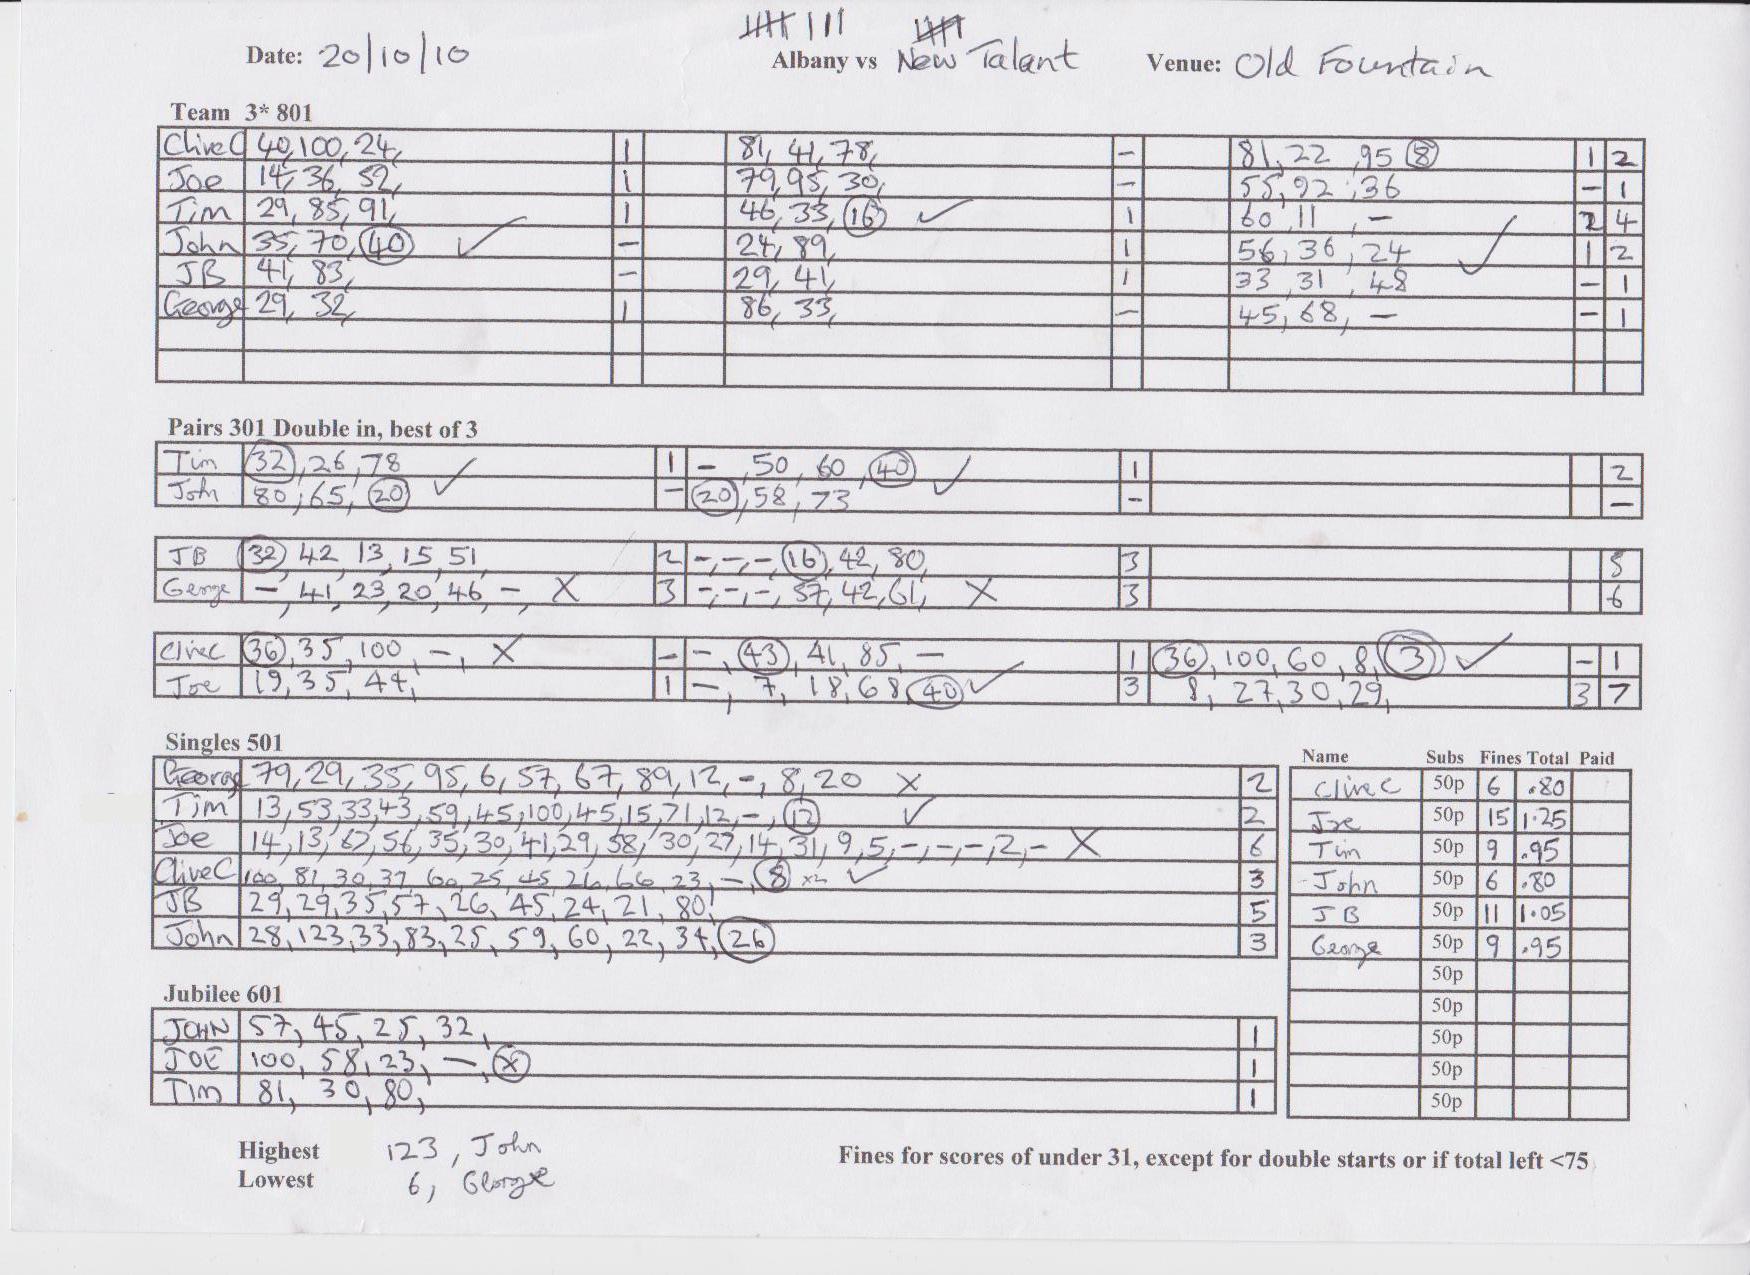 Date: 20/10/10 Albany vs New Talent Venue: Old Fountain
Team 3* 801
Clive C 40, 100, 24, 1 81, 41, 78, - 81, 22, 95 8 1 2
Joe 14, 36, 52, 1 79, 95, 30, - 55, 92, 36 - 1
Tim 29, 85, 91, 1 46, 33, 16 ✓ 1 60, 11, - 2 4
John 35, 70, 40 ✓ - 24, 89, 1 56, 36, 24 ✓ 1 2
JB 41, 83, - 29, 41, 1 33, 31, 48 - 1
George 29, 32, 1 86, 33, - 45, 68, - - 1
Pairs 301 Double in, best of 3
Tim 32, 26, 78 ✓ 1 -, 50, 60, 40 ✓ 1 2
John 80, 65, 20 - 20, 58, 73 - -
JB 32, 42, 13, 15, 51, 2 -, -, -, 16, 42, 80, 3 5
George -, 41, 23, 20, 46, -, X 3 -, -, -, 57, 42, 61, X 3 6
Clive C 36, 35, 100, -, X - -, 43, 41, 85, - 1 36, 100, 60, 8, 3 ✓ - 1
Joe 19, 35, 44, 1 -, 7, 18, 68 40 ✓ 3 8, 27, 30, 29, 3 7
Singles 501
George 79, 29, 35, 95, 6, 57, 67, 89, 12, -, 8, 20 X 2
Tim 13, 53, 33, 43, 59, 45, 100, 45, 15, 71, 12, -, 12 ✓ 2
Joe 14, 13, 67, 56, 35, 30, 41, 29, 58, 30, 27, 14, 31, 9, 5, -, -, -, 2, - X 6
Clive C 100, 81, 30, 37, 60, 25, 45, 26, 66, 23, -, 8 x2 ✓ 3
JB 29, 29, 35, 57, 26, 45, 24, 21, 80, 5
John 28, 123, 33, 83, 25, 59, 60, 22, 34, 26 3
Name Subs Fines Total Paid
Clive C 50p 6 .80
Joe 50p 15 1.25
Tim 50p 9 .95
John 50p 6 .80
JB 50p 11 1.05
George 50p 9 .95
50p
50p
50p
50p
50p
Jubilee 601
JOHN 57, 45, 25, 32, 1
JOE 100, 58, 23, -, X 1
TIM 81, 30, 80, 1
Highest 123, John
Lowest 6, George
Fines for scores of under 31, except for double starts or if total left <75